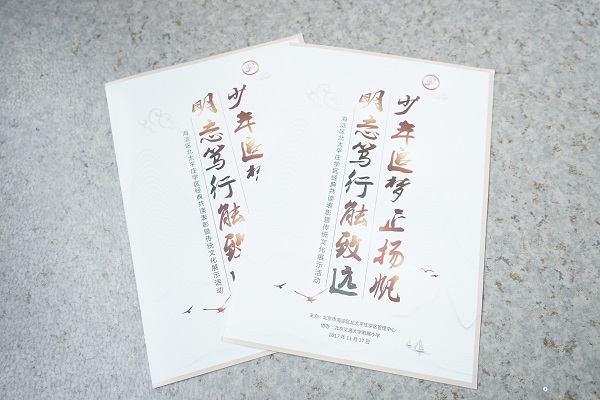 少年追
明志笃行能致
海淀区北太平庄学区经典共读表彰暨传统文化展示活动
少年追梦正扬帆
明志笃行能致远
海淀区北太平庄学区经典共读表彰暨传统文化展示活动
主办：北京市海淀区北太平庄学区管理中心
协办：北京交通大学附属小学
2017 年 11 月 27 日